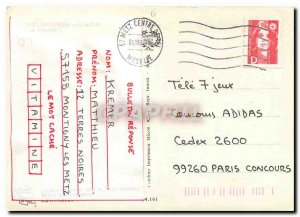 BULLETIN RÉPONSE
NOM: KREMER
PRÉNOM: MATTHIEU
ADRESSE: 12 TERRES NOIRES
57158 MONTIGNY LES METZ
LE MOT CACHÉ
VITAMINE
57 METZ CENTRE
MOSELLE
D
Télé 7 jeux
Concours ADIDAS
Cedex 2600
99260 PARIS CONCOURS